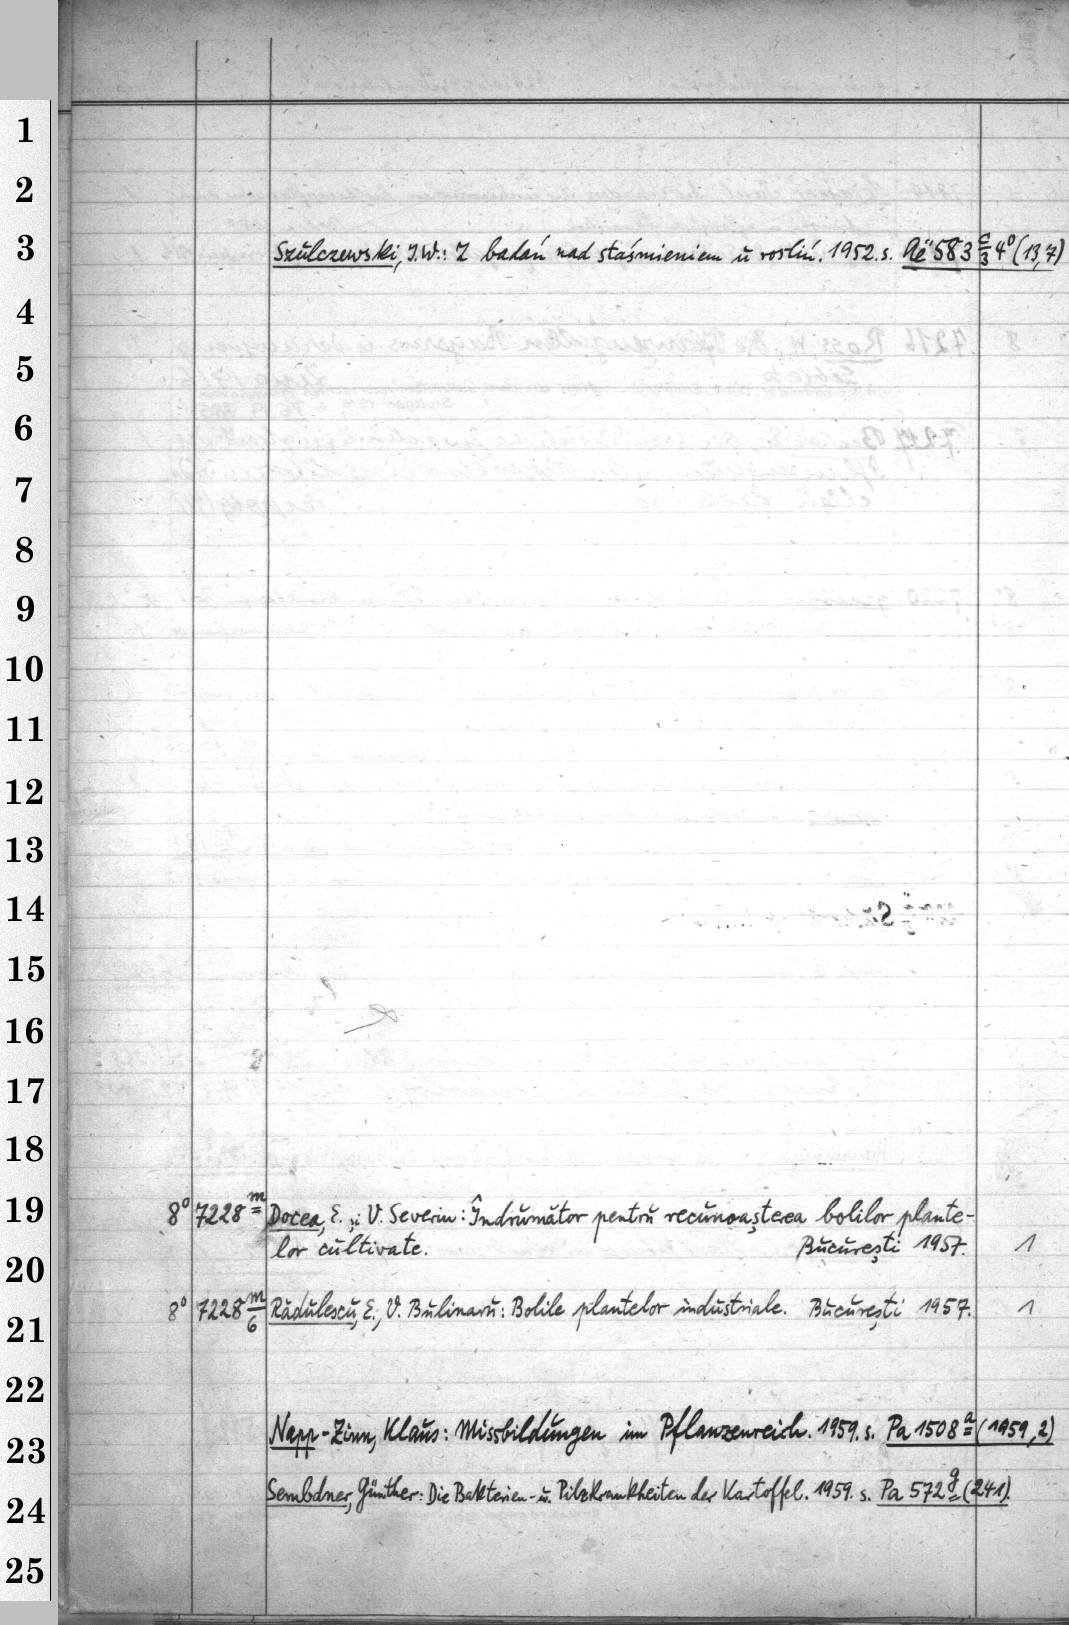 1
2
3 Szulczewski, J.W.: Z badań nad staśmieniem u roślin. 1952. s. Aë 583 c/3 4° (13,7)
4
5
6
7
8
9
10
11
12
13
14
15
16
17
18
19 8° 7228 m Docea, E. și V. Severin: Îndrumător pentru recunoașterea bolilor plante-
lor cultivate. București 1957. 1
20
8° 7228 m/6 Rădulescu, E., V. Bulinaru: Bolile plantelor industriale. București 1957. 1
21
22
23 Napp-Zinn, Klaus: Missbildungen im Pflanzenreich. 1959. s. Pa 1508 a (1959, 2)
24 Sembdner, Günther: Die Bakterien- u. Pilzkrankheiten der Kartoffel. 1959. s. Pa 572 g (241).
25